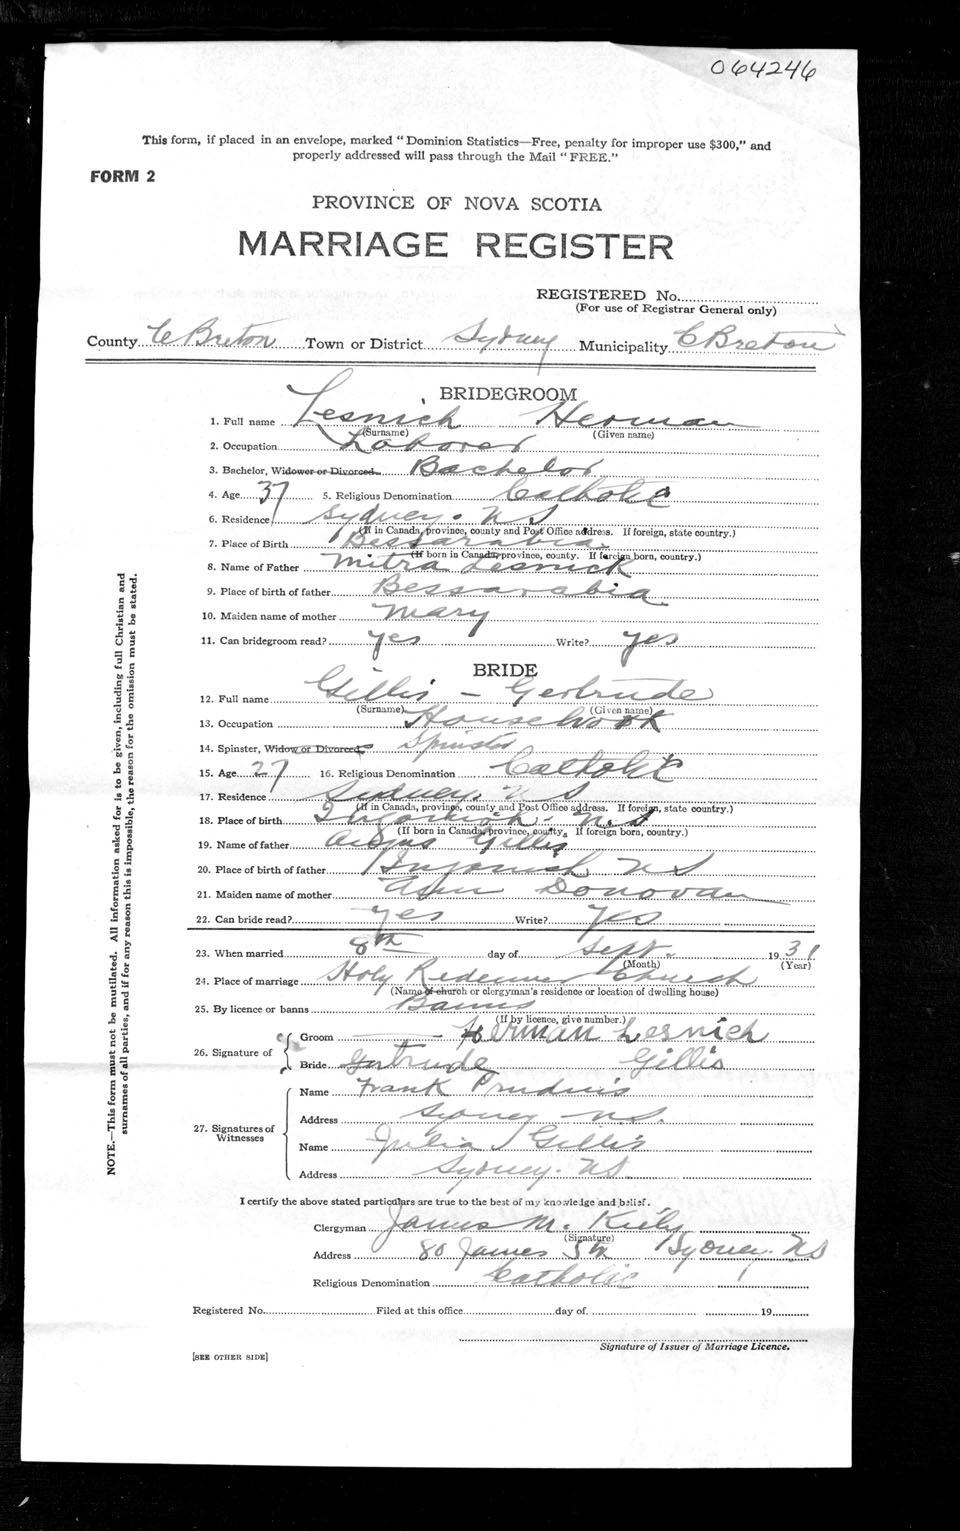 064246
This form, if placed in an envelope, marked "Dominion Statistics—Free, penalty for improper use $300," and
properly addressed will pass through the Mail "FREE."
FORM 2
PROVINCE OF NOVA SCOTIA
MARRIAGE REGISTER
REGISTERED No.
(For use of Registrar General only)
County C Breton Town or District Sydney Municipality C Breton
BRIDEGROOM
1. Full name Lesnich Herman
(Surname) (Given name)
2. Occupation Laborer
3. Bachelor, Widower or Divorced Bachelor
4. Age 37 5. Religious Denomination Catholic
6. Residence Sydney. NS
(If in Canada, province, county and Post Office address. If foreign, state country.)
7. Place of Birth Bessarabia
(If born in Canada, province, county. If foreign born, country.)
8. Name of Father Mitra Lesnick
9. Place of birth of father Bessarabia
10. Maiden name of mother Mary
11. Can bridegroom read? yes Write? yes
BRIDE
12. Full name Gillis – Gertrude
(Surname) (Given name)
13. Occupation Housework
14. Spinster, Widow or Divorced Spinster
15. Age 27 16. Religious Denomination Catholic
17. Residence Sydney. N S
(If in Canada, province, county and Post Office address. If foreign, state country.)
18. Place of birth Ingonish. N.S
(If born in Canada, province, county. If foreign born, country.)
19. Name of father Angus Gillis
20. Place of birth of father Ingonish NS
21. Maiden name of mother Ann Donovan
22. Can bride read? yes Write? yes
23. When married 8th day of Sept. 1931
(Month) (Year)
24. Place of marriage Holy Redeemer Church
(Name of church or clergyman's residence or location of dwelling house)
25. By licence or banns Banns
(If by licence, give number.)
26. Signature of
Groom Herman Lesnich
Bride Gertrude Gillis
27. Signatures of Witnesses
Name Frank
Address Sydney NS.
Name Julia Gillis
Address Sydney. NS
I certify the above stated particulars are true to the best of my knowledge and belief.
Clergyman James M. Kiely
(Signature)
Address 80 James St Sydney. NS
Religious Denomination Catholic
Registered No. Filed at this office day of 19
Signature of Issuer of Marriage Licence.
[SEE OTHER SIDE]
NOTE.—This form must not be mutilated. All information asked for is to be given, including full Christian and
surnames of all parties, and if for any reason this is impossible, the reason for the omission must be stated.